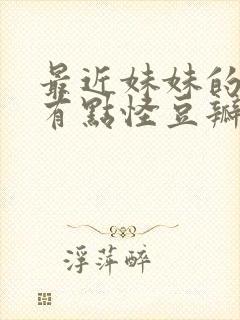 最近妹妹的
有點怪豆瓣
浮萍醉